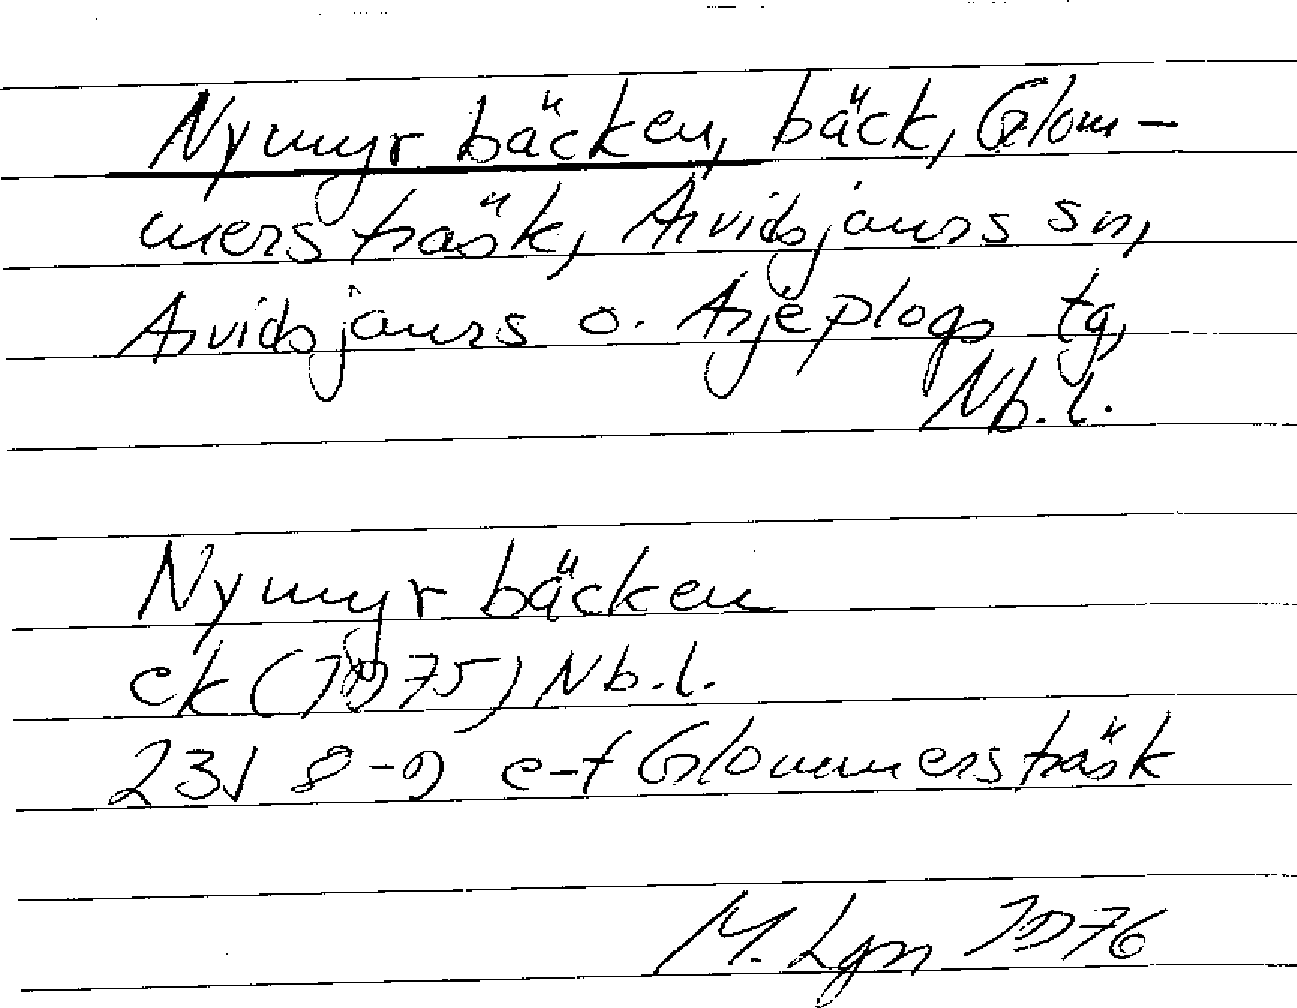 Nymyrbäcken, bäck, Glom-
mersträsk, Arvidsjaurs sn,
Arvidsjaurs o. Arjeplogs tg,
Nb.l.
Nymyrbäcken
ek (1975) Nb.l.
23J 8-9 e-f Glommersträsk
M. Lgn 1976